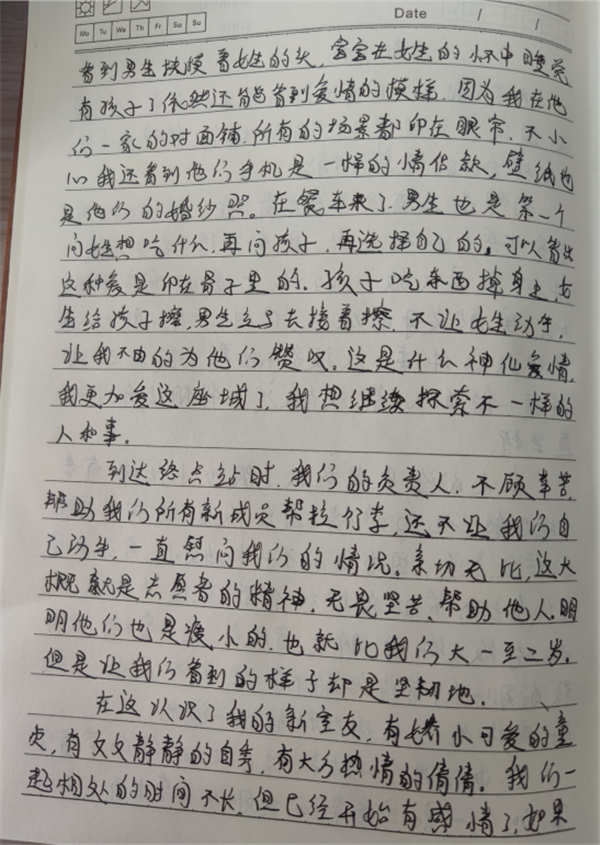 Date / /
Mo Tu We Th Fr Sa Su
看到男生抚摸着女生的头，宝宝在女生的怀中睡觉
有孩子了依然还能看到爱情的模样，因为我在他
们一家的对面铺，所有的场景都印在眼帘，不小
心我还看到他们手机是一样的情侣款，壁纸也
是他们的婚纱照。在餐车来了，男生也是第一个
问女生想吃什么，再问孩子，再选择自己的。可以看出
这种爱是印在骨子里的，孩子吃东西掉身上，女
生给孩子擦，男生立马去接着擦，不让女生动手，
让我不由的为他们赞叹。这是什么神仙爱情，
我更加爱这座城了，我想继续探索不一样的
人和事。
到达终点站时，我们的负责人，不顾辛苦，
帮助我们所有新成员帮拉行李，还不让我们自
己动手，一直慰问我们的情况。亲切无比，这大
概就是志愿者的精神，无畏坚苦，帮助他人，明
明他们也是瘦小的，也就比我们大一至二岁，
但是让我们看到的样子却是坚韧地。
在这认识了我的新室友，有娇小可爱的童
，有文文静静的自秀，有大方热情的倩倩。我们一
起相处的时间不长，但已经开始有感情了，如果